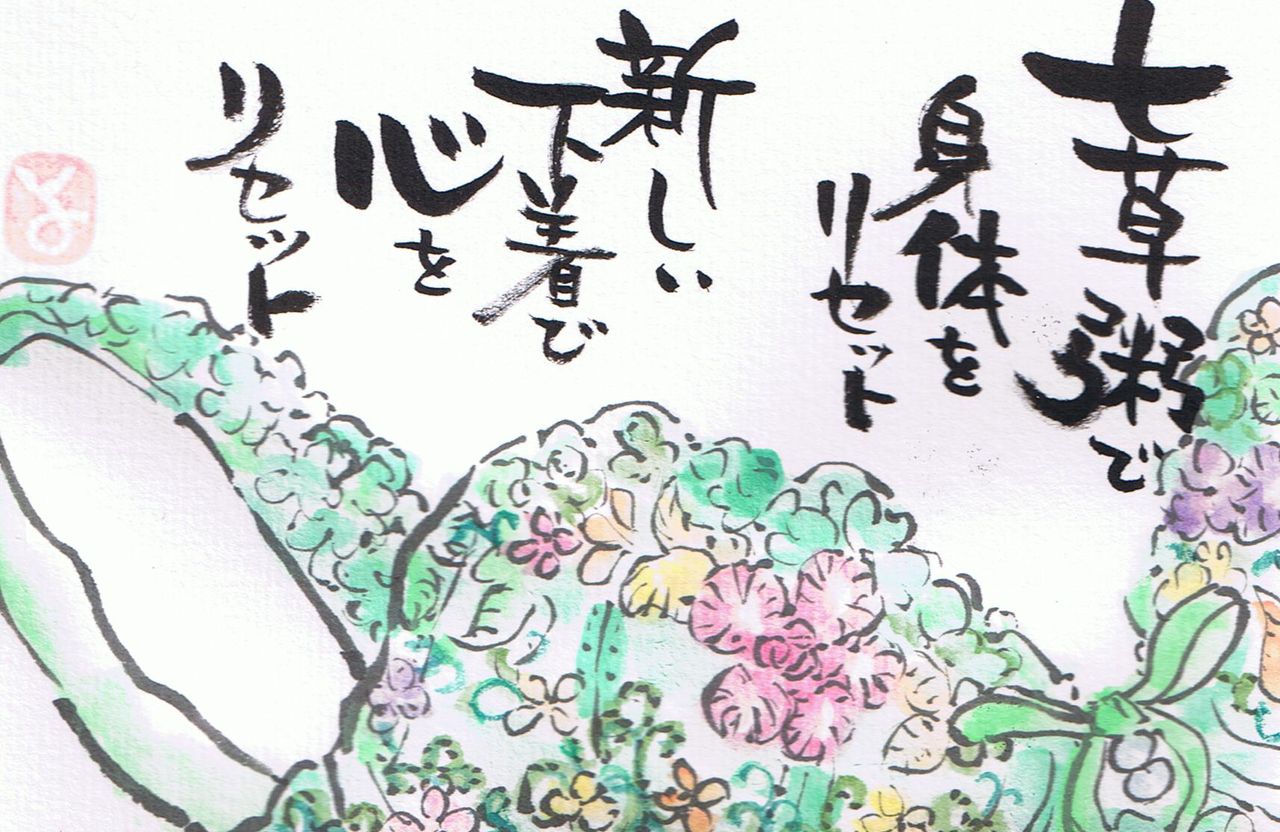 七草粥で
身体を
リセット
新しい
下着で
心を
リセット